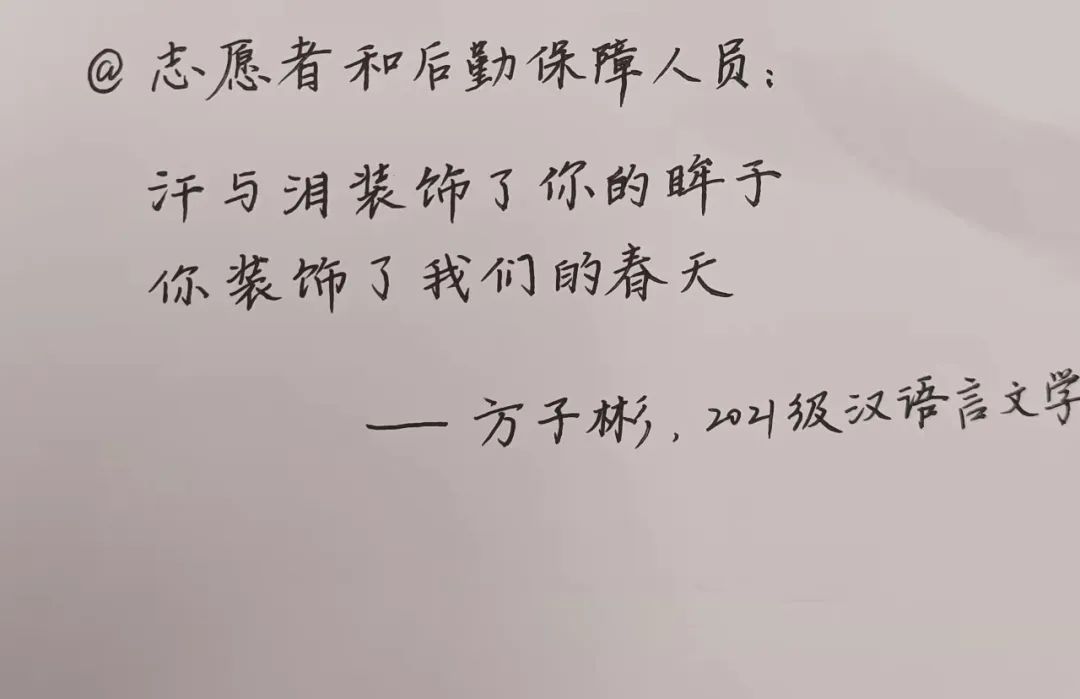 @志愿者和后勤保障人员：
汗与泪装饰了你的眸子
你装饰了我们的春天
——方子彬，2021级汉语言文学